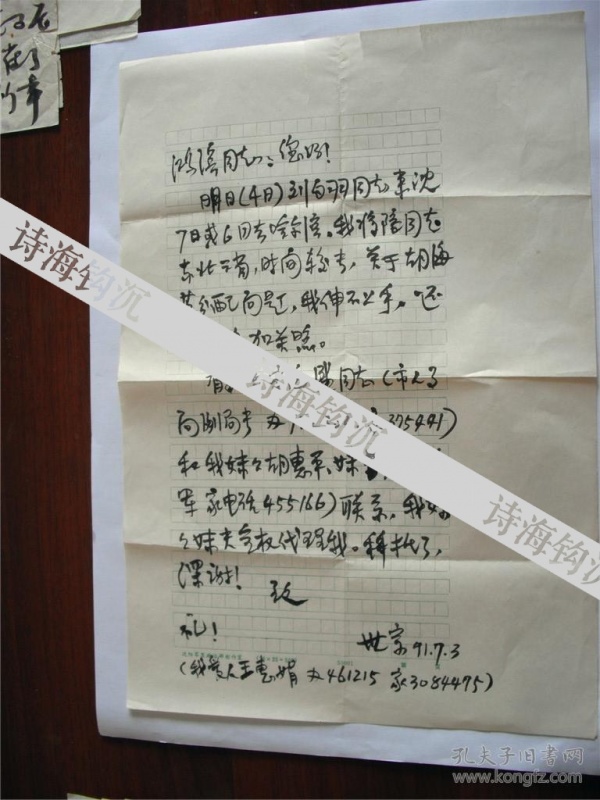 同志：您好！
明日（4日）刘白羽同志来沈
7日或6日去哈尔滨。我将陪同志
东北三省，时间较长，关于胡海
分配问题，我伸不上手。还
加关照。
同志（市人
局副局长 办 375441）
和我妹妹胡惠 妹
军 家电话455166）联系，我妹
妹夫全权代理我。拜托了，
深谢！ 致
礼！ 世宗 91.7.3
（我爱人王惠娟 办461215 家3084475）
诗海钩沉
诗海钩沉
诗海钩沉
孔夫子旧书网
www.kongfz.com